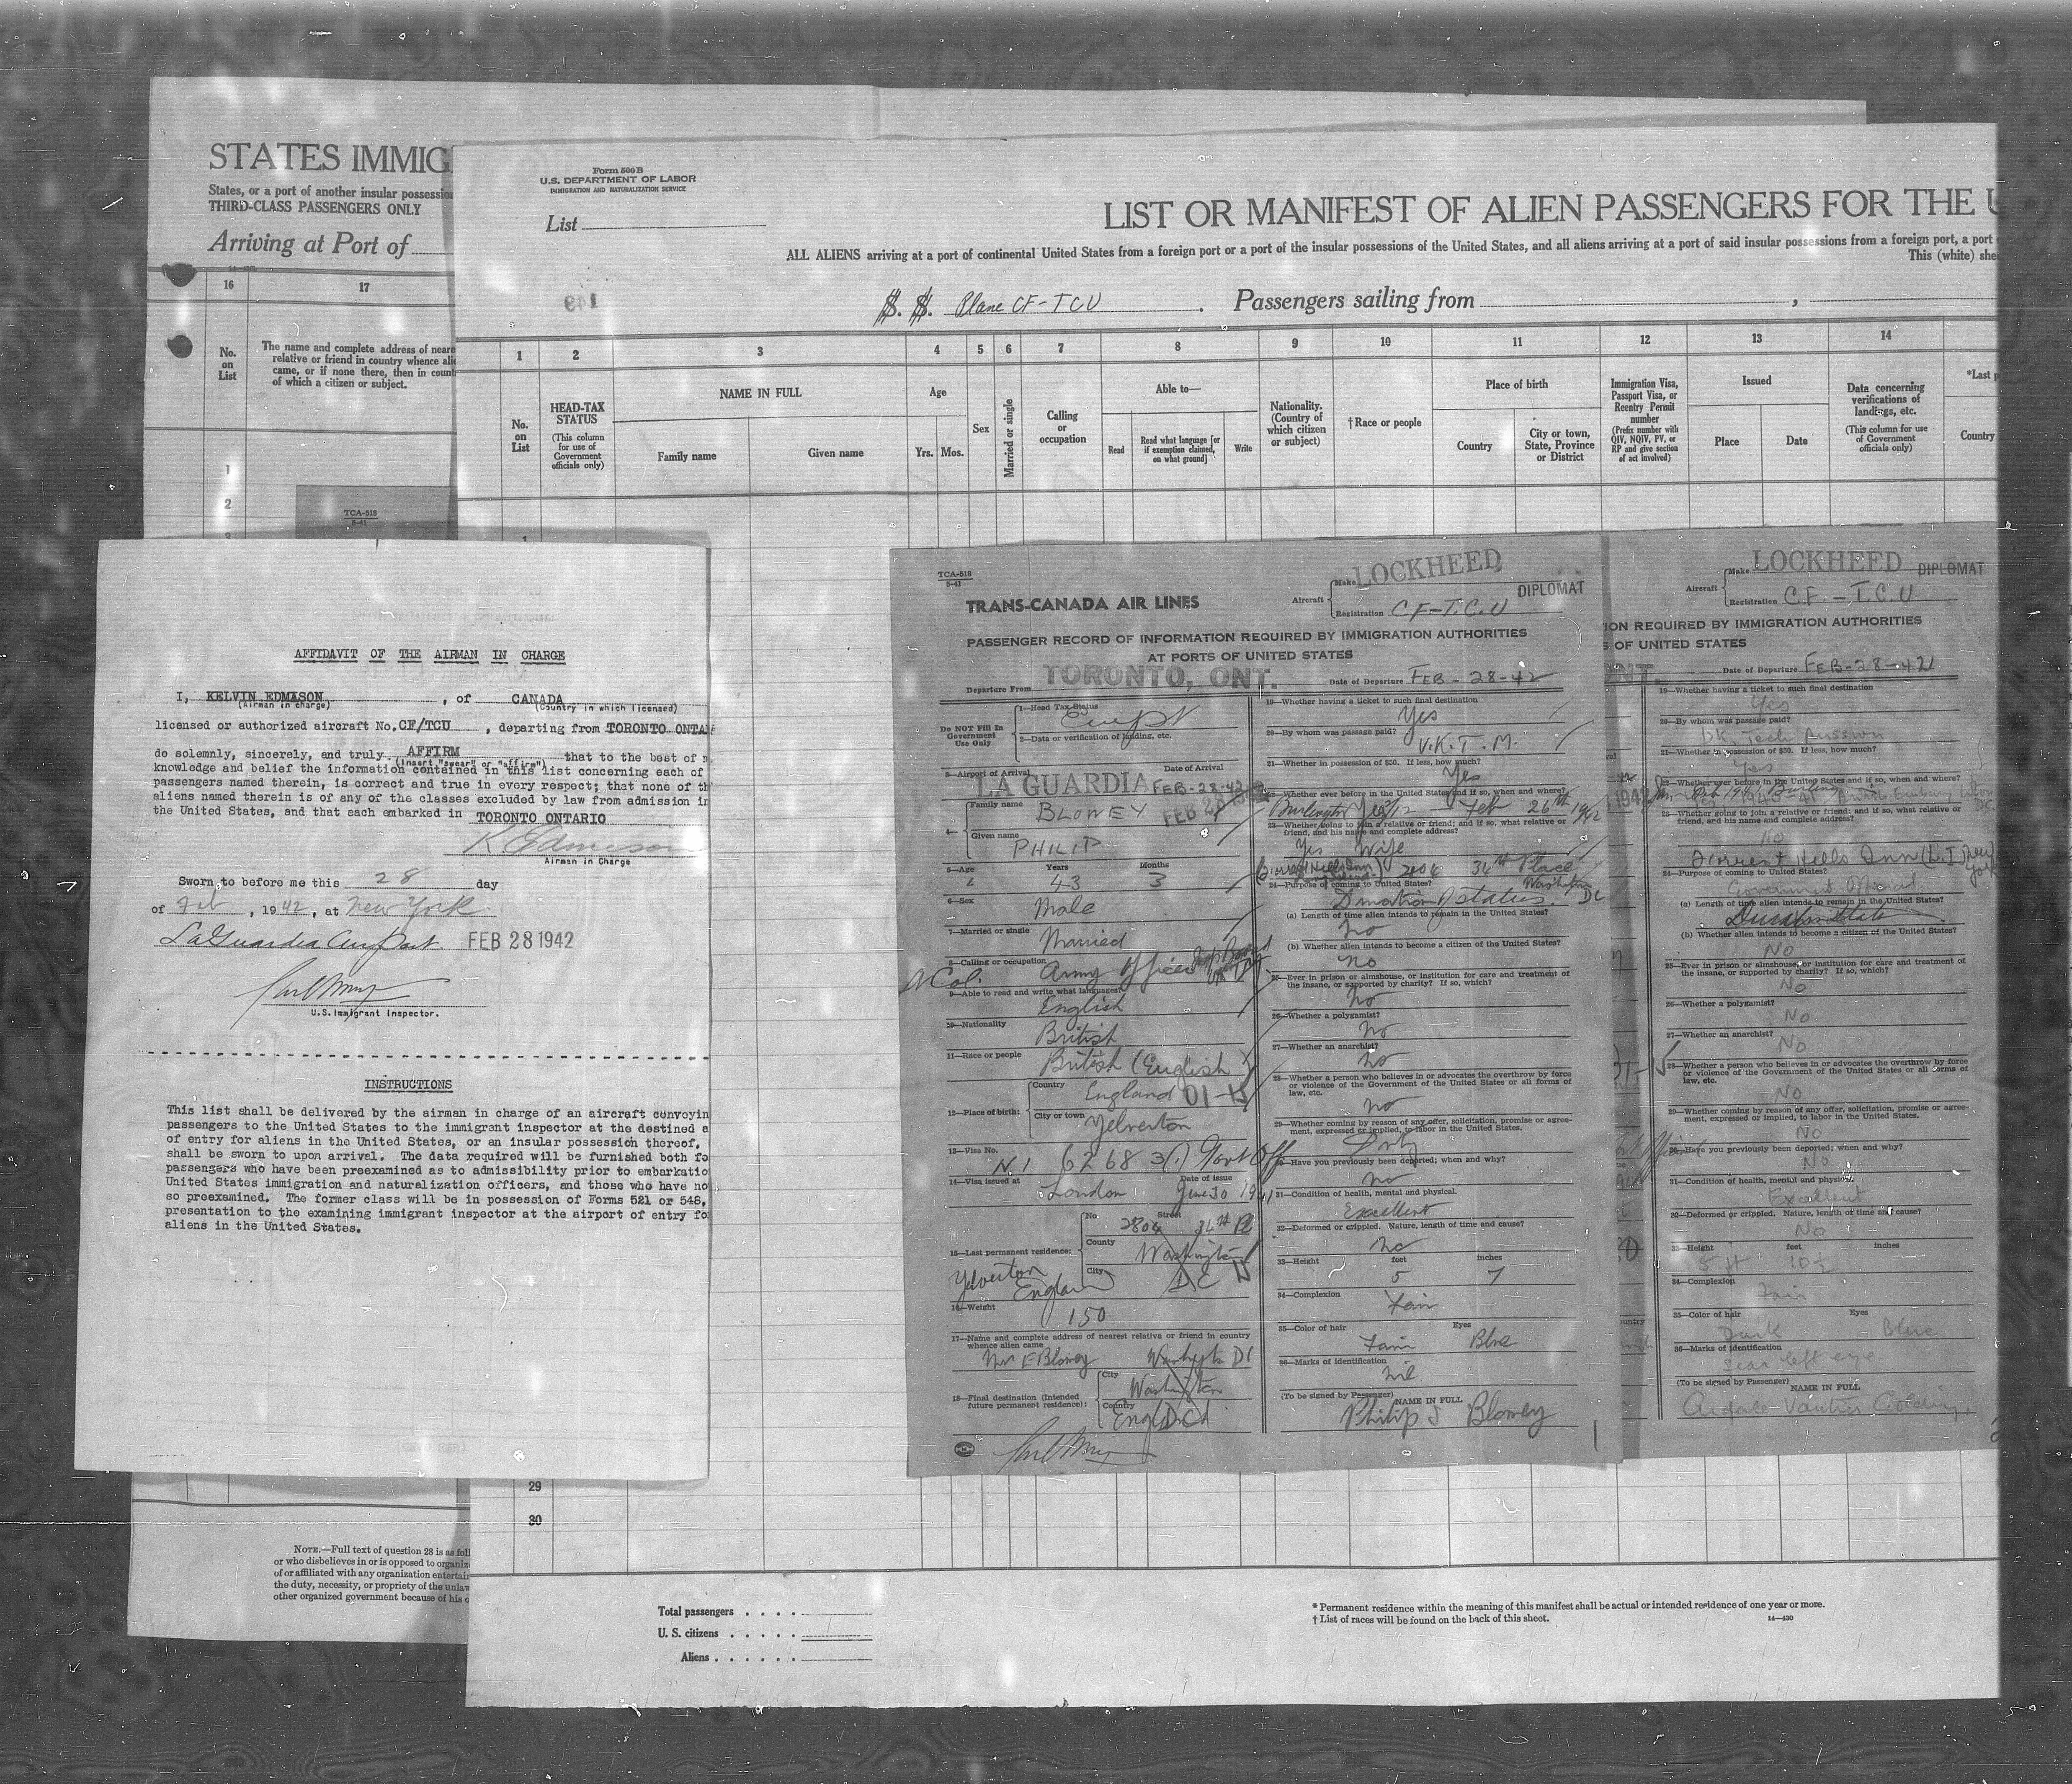 STATES IMMIG
States, or a port of another insular possessio
THIRD-CLASS PASSENGERS ONLY
Arriving at Port of
16
17
No.
on
List
The name and complete address of neare
relative or friend in country whence alie
came, or if none there, then in count
of which a citizen or subject.
1
2
3
TCA-518
5-41
Form 500 B
U.S. DEPARTMENT OF LABOR
IMMIGRATION AND NATURALIZATION SERVICE
List
LIST OR MANIFEST OF ALIEN PASSENGERS FOR THE U
ALL ALIENS arriving at a port of continental United States from a foreign port or a port of the insular possessions of the United States, and all aliens arriving at a port of said insular possessions from a foreign port, a port
This (white) she
149
S. S. Plane CF-TCU . Passengers sailing from ,
1 2 3 4 5 6 7 8 9 10 11 12 13 14
No.
on
List
HEAD-TAX
STATUS
(This column
for use of
Government
officials only)
NAME IN FULL
Family name
Given name
Age
Yrs. Mos.
Sex
Married or single
Calling
or
occupation
Able to—
Read
Read what language [or
if exemption claimed,
on what ground]
Write
Nationality.
(Country of
which citizen
or subject)
†Race or people
Place of birth
Country
City or town,
State, Province
or District
Immigration Visa,
Passport Visa, or
Reentry Permit
number
(Prefix number with
QIV, NQIV, PV, or
RP and give section
of act involved)
Issued
Place
Date
Data concerning
verifications of
landings, etc.
(This column for use
of Government
officials only)
*Last p
Country
1
AFFIDAVIT OF THE AIRMAN IN CHARGE
I, KELVIN EDMISON , of CANADA
(Airman in charge) (Country in which licensed)
licensed or authorized aircraft No. CF/TCU , departing from TORONTO ONTA
do solemnly, sincerely, and truly AFFIRM that to the best of m
(Insert "swear" or "affirm")
knowledge and belief the information contained in this list concerning each of
passengers named therein, is correct and true in every respect; that none of th
aliens named therein is of any of the classes excluded by law from admission in
the United States, and that each embarked in TORONTO ONTARIO
K Edmison
Airman in Charge
Sworn to before me this 28 day
of Feb , 1942, at New York
LaGuardia Airport. FEB 28 1942
U.S. Immigrant Inspector.
INSTRUCTIONS
This list shall be delivered by the airman in charge of an aircraft conveyin
passengers to the United States to the immigrant inspector at the destined a
of entry for aliens in the United States, or an insular possession thereof,
shall be sworn to upon arrival. The data required will be furnished both fo
passengers who have been preexamined as to admissibility prior to embarkatio
United States immigration and naturalization officers, and those who have no
so preexamined. The former class will be in possession of Forms 521 or 548,
presentation to the examining immigrant inspector at the airport of entry fo
aliens in the United States.
TCA-518
5-41
TRANS-CANADA AIR LINES
Aircraft
Make LOCKHEED
DIPLOMAT
Registration CF-T.C.U
PASSENGER RECORD OF INFORMATION REQUIRED BY IMMIGRATION AUTHORITIES
AT PORTS OF UNITED STATES
Departure From TORONTO, ONT. Date of Departure FEB-28-42
Do NOT Fill In
Government
Use Only
1—Head Tax Status
2—Data or verification of landing, etc.
3—Airport of Arrival LA GUARDIA Date of Arrival FEB-28-42
4—
Family name BLOWEY FEB 28 1942
Given name PHILIP
5—Age Years 43 Months 3
6—Sex Male
7—Married or single Married
8—Calling or occupation Army Officer
9—Able to read and write what languages? English
10—Nationality British
11—Race or people British (English)
12—Place of birth:
Country England
City or town Yelverton
13—Visa No. 6268 3(1) Govt Off
14—Visa issued at London Date of issue June 30 1941
15—Last permanent residence:
No 2804 Street 36th Pl
County Washington
City DC
Yelverton
England
16—Weight 150
17—Name and complete address of nearest relative or friend in country
whence alien came
Mrs E Blowey Washington DC
18—Final destination (Intended
future permanent residence):
City Washington
Country
19—Whether having a ticket to such final destination
Yes
20—By whom was passage paid?
U.K.T.M.
21—Whether in possession of $50. If less, how much?
Yes
22—Whether ever before in the United States and if so, when and where?
Burlington Feb 26th 1942
23—Whether going to join a relative or friend; and if so, what relative or
friend, and his name and complete address?
Yes Wife
2804 36th Place
Washington DC
24—Purpose of coming to United States?
(a) Length of time alien intends to remain in the United States?
no
(b) Whether alien intends to become a citizen of the United States?
no
25—Ever in prison or almshouse, or institution for care and treatment of
the insane, or supported by charity? If so, which?
no
26—Whether a polygamist?
no
27—Whether an anarchist?
no
28—Whether a person who believes in or advocates the overthrow by force
or violence of the Government of the United States or all forms of
law, etc.
no
29—Whether coming by reason of any offer, solicitation, promise or agree-
ment, expressed or implied, to labor in the United States.
Duty
30—Have you previously been deported; when and why?
no
31—Condition of health, mental and physical.
Excellent
32—Deformed or crippled. Nature, length of time and cause?
no
33—Height feet inches
5 7
34—Complexion
Fair
35—Color of hair Eyes
Fair Blue
36—Marks of identification
nil
(To be signed by Passenger) NAME IN FULL
Philip S Blowey
Aircraft
Make LOCKHEED
DIPLOMAT
Registration C.F.-T.C.U
ION REQUIRED BY IMMIGRATION AUTHORITIES
S OF UNITED STATES
ONT. Date of Departure FEB-28-42
19—Whether having a ticket to such final destination
Yes
20—By whom was passage paid?
UK Tech Mission
21—Whether in possession of $50. If less, how much?
Yes
22—Whether ever before in the United States and if so, when and where?
23—Whether going to join a relative or friend; and if so, what relative or
friend, and his name and complete address?
No
Forrest Hills Inn (L.I. New York)
24—Purpose of coming to United States?
Government Official
(a) Length of time alien intends to remain in the United States?
(b) Whether alien intends to become a citizen of the United States?
No
25—Ever in prison or almshouse, or institution for care and treatment of
the insane, or supported by charity? If so, which?
No
26—Whether a polygamist?
No
27—Whether an anarchist?
No
28—Whether a person who believes in or advocates the overthrow by force
or violence of the Government of the United States or all forms of
law, etc.
No
29—Whether coming by reason of any offer, solicitation, promise or agree-
ment, expressed or implied, to labor in the United States.
No
30—Have you previously been deported; when and why?
No
31—Condition of health, mental and physical.
Excellent
32—Deformed or crippled. Nature, length of time and cause?
No
33—Height feet inches
5 ft 10½
34—Complexion
Fair
35—Color of hair Eyes
Dark Blue
36—Marks of identification
Scar left eye
(To be signed by Passenger) NAME IN FULL
29
30
NOTE.—Full text of question 28 is as foll
or who disbelieves in or is opposed to organiz
of or affiliated with any organization entertain
the duty, necessity, or propriety of the unlaw
other organized government because of his o
Total passengers
U. S. citizens
Aliens
* Permanent residence within the meaning of this manifest shall be actual or intended residence of one year or more.
† List of races will be found on the back of this sheet.
14—430